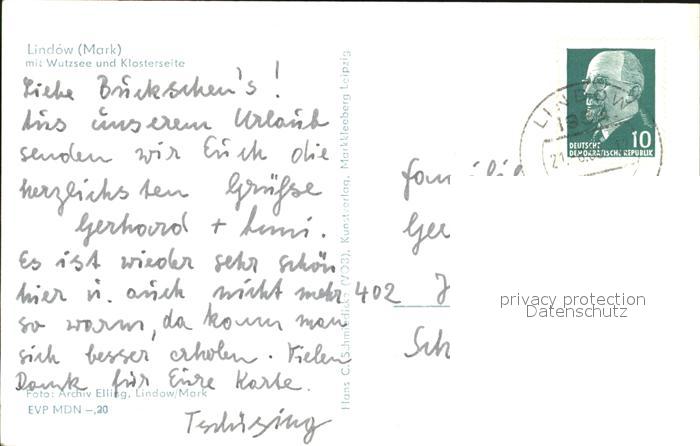 Lindow (Mark)
mit Wutzsee und Klosterseite
Liebe Bückschen's!
Aus unserem Urlaub
senden wir Euch die
herzlichsten Grüsse
Gerhard +
Es ist wieder sehr schön
hier u. auch nicht mehr
so warm, da kann man
sich besser erholen. Vielen
Dank für Eure Karte.
Foto: Archiv Elling, Lindow/Mark
EVP MDN –,20
Hans C. Schmiedicke (VOB), Kunstverlag, Markkleeberg Leipzig
LINDOW
10
DEUTSCHE
DEMOKRATISCHE REPUBLIK
402
privacy protection
Datenschutz